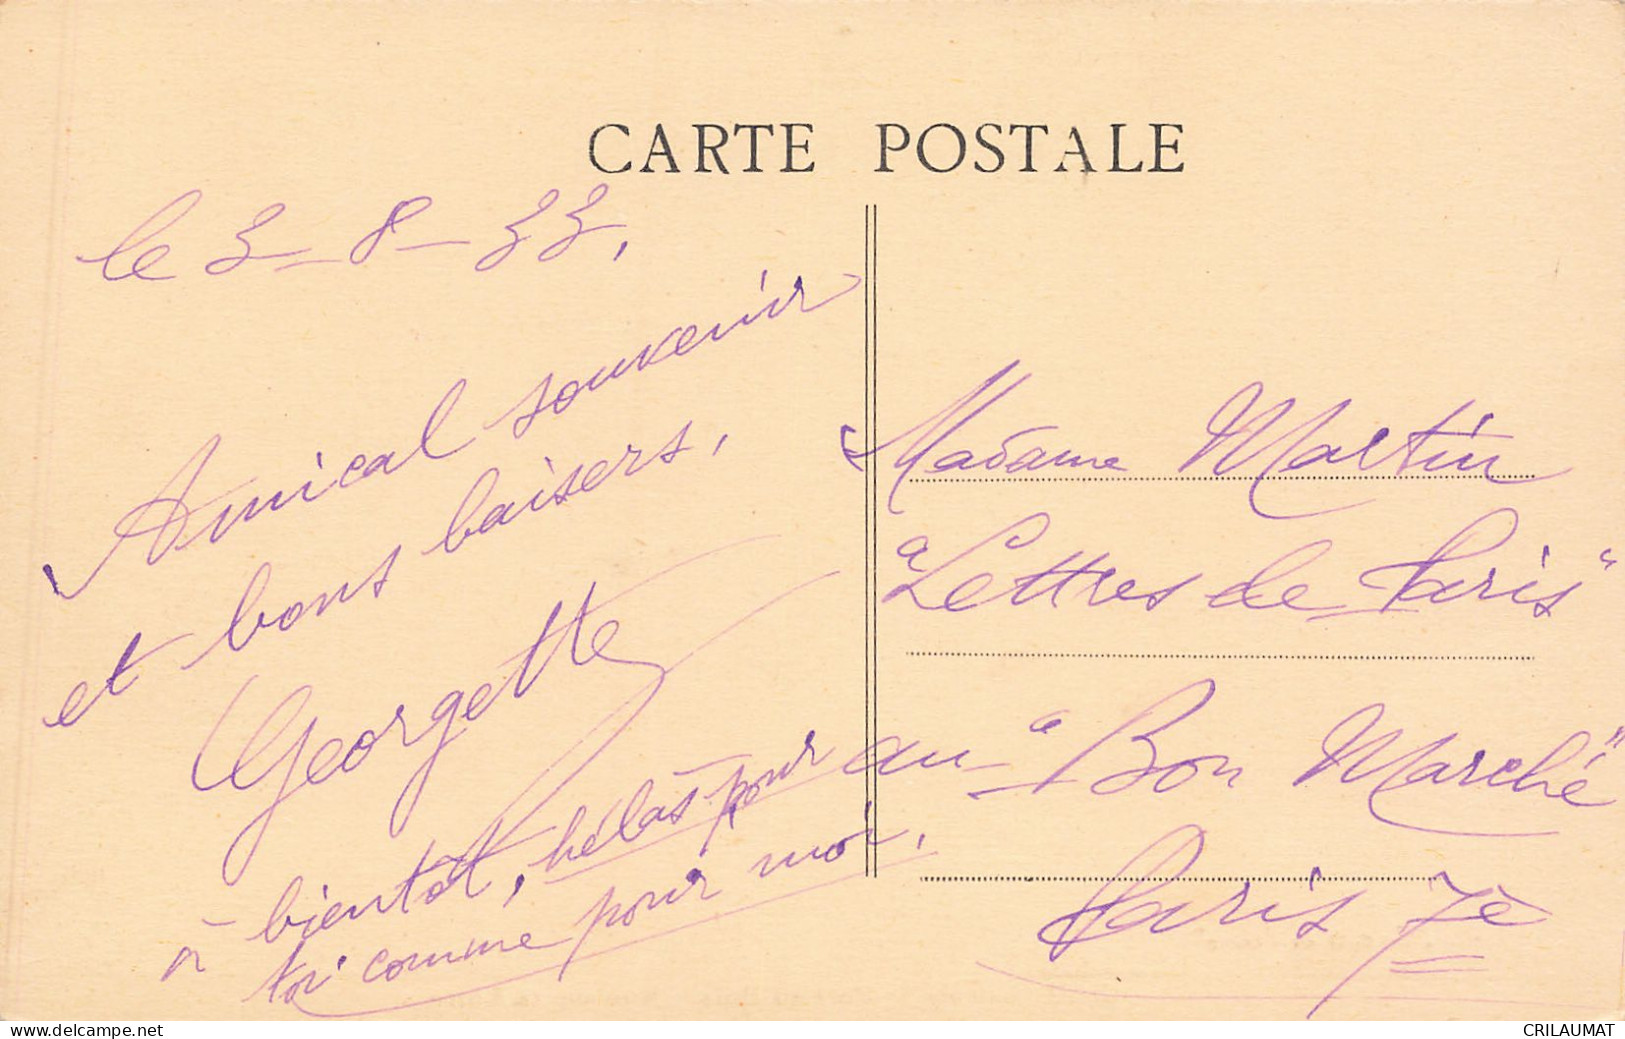 CARTE POSTALE
le 3-8-33,
Amical souvenir
et bons baisers,
Georgette
à bientôt, hélas pour
toi comme pour moi.
Madame Martin
"Lettres de Paris"
au "Bon Marché"
Paris 7è
www.delcampe.net
CRILAUMAT